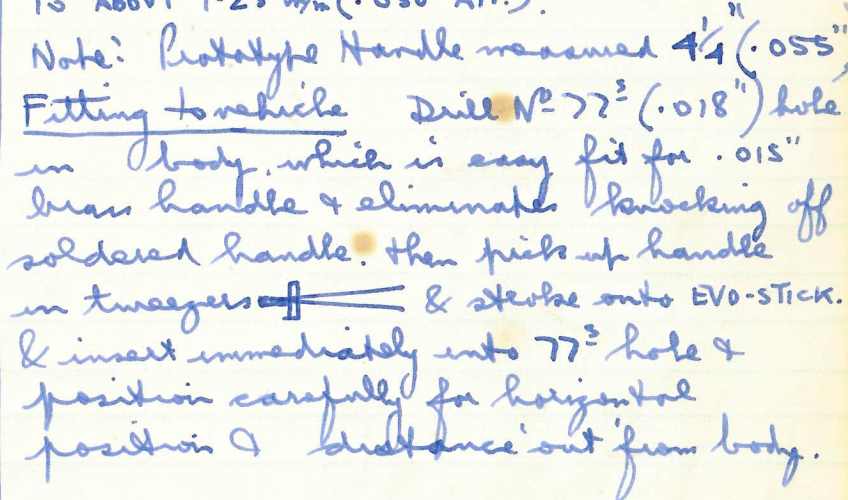 TO ABOVE 1.25 m/m (.050 APP.).
Note: Prototype Handle measured 4 1/4" (.055"
Fitting to vehicle Drill Nº 77s (.018") hole
in body, which is easy fit for .015"
brass handle & eliminates knocking off
soldered handle. then pick up handle
in tweezers & stroke onto EVO-STICK.
& insert immediately into 77s hole &
position carefully for horizontal
position & distance out from body.